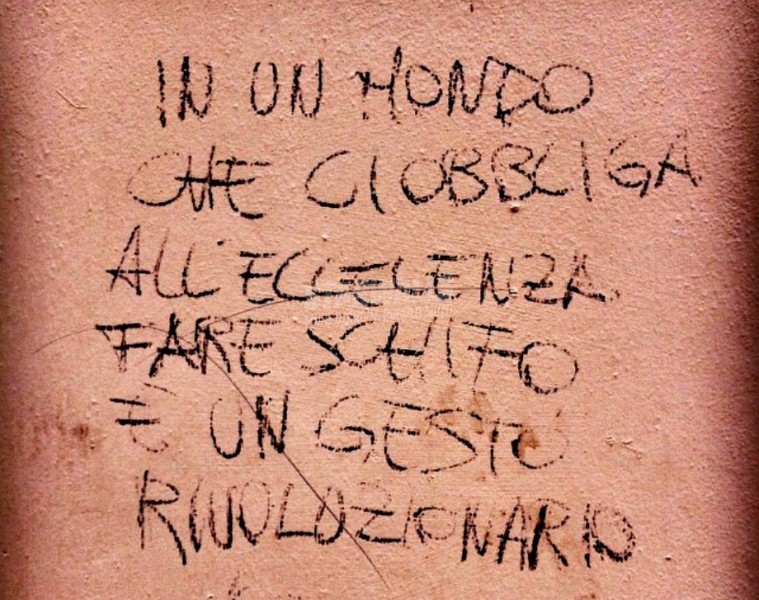 IN UN MONDO
CHE CI OBBLIGA
ALL'ECCELLENZA
FARE SCHIFO
È UN GESTO
RIVOLUZIONARIO